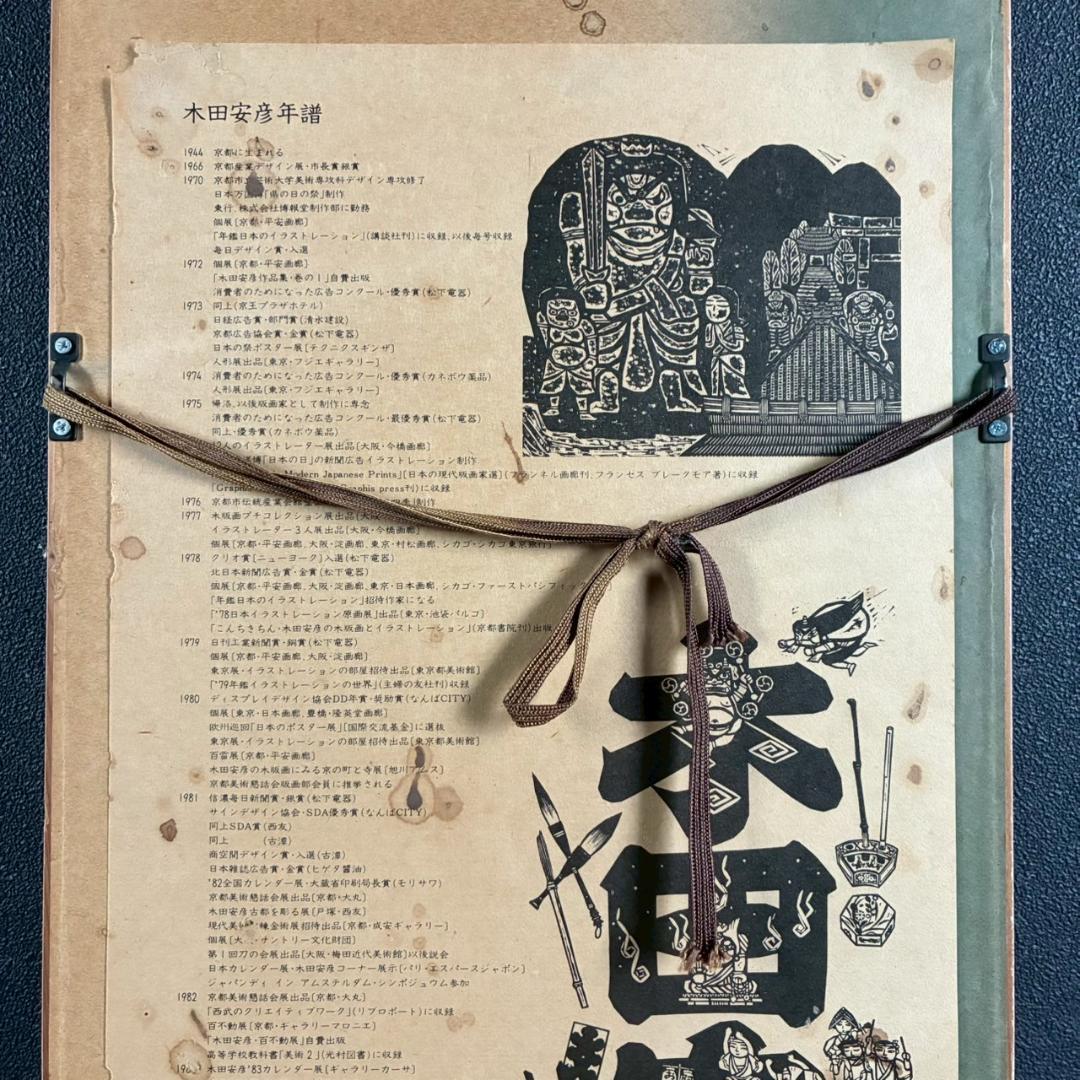 木田安彦年譜
1944 京都に生まれる
1966 京都産業デザイン展・市長賞銀賞
1970 京都市立芸術大学美術専攻科デザイン専攻修了
日本万国博「県の日の祭」制作
東行、株式会社博報堂制作部に勤務
個展[京都・平安画廊]
「年鑑日本のイラストレーション」(講談社刊)に収録、以後毎号収録
毎日デザイン賞・入選
1972 個展[京都・平安画廊]
「木田安彦作品集・巻の1」自費出版
消費者のためになった広告コンクール・優秀賞(松下電器)
1973 同上(京王プラザホテル)
日経広告賞・部門賞(清水建設)
京都広告協会賞・金賞(松下電器)
日本の祭ポスター展[テクニクスギンザ]
人形展出品[東京・フジエギャラリー]
1974 消費者のためになった広告コンクール・優秀賞(カネボウ薬品)
人形展出品[東京・フジエギャラリー]
1975 帰洛、以後版画家として制作に専念
消費者のためになった広告コンクール・最優秀賞(松下電器)
同上・優秀賞(カネボウ薬品)
12人のイラストレーター展出品[大阪・今橋画廊]
博「日本の日」の新聞広告イラストレーション制作
Modern Japanese Prints」[日本の現代版画家選](フランネル画廊刊、フランセス ブレークモア著)に収録
「Graphis press刊)に収録
1976 京都市伝統産業会館 制作
1977 木版画プチコレクション展出品
イラストレーター3人展出品[大阪・今橋画廊]
個展[京都・平安画廊、大阪・淀画廊、東京・村松画廊、シカゴ・シカゴ東京銀行]
1978 クリオ賞[ニューヨーク]入選(松下電器)
北日本新聞広告賞・金賞(松下電器)
個展[京都・平安画廊、大阪・淀画廊、東京・日本画廊、シカゴ・ファーストパシフィック
「年鑑日本のイラストレーション」招待作家になる
「'78日本イラストレーション原画展」出品[東京・池袋パルコ]
「こんちきちん・木田安彦の木版画とイラストレーション」(京都書院刊)出版
1979 日刊工業新聞賞・銅賞(松下電器)
個展[京都・平安画廊、大阪・淀画廊]
東京展・イラストレーションの部屋招待出品[東京都美術館]
「'79年鑑イラストレーションの世界」(主婦の友社刊)収録
1980 ディスプレイデザイン協会DD年賞・奨励賞(なんばCITY)
個展[東京・日本画廊、豊橋・隆英堂画廊]
欧州巡回「日本のポスター展」[国際交流基金]に選抜
東京展・イラストレーションの部屋招待出品[東京都美術館]
百雷展[京都・平安画廊]
木田安彦の木版画にみる京の町と寺展[旭川
京都美術懇話会版画部会員に推挙される
1981 信濃毎日新聞賞・銀賞(松下電器)
サインデザイン協会・SDA優秀賞(なんばCITY)
同上SDA賞(西友)
同上 (古漳)
商空間デザイン賞・入選(古漳)
日本雑誌広告賞・金賞(ヒゲタ醤油)
'82全国カレンダー展・大蔵省印刷局長賞(モリサワ)
京都美術懇話会展出品[京都・大丸]
木田安彦古都を彫る展[戸塚・西友]
現代美 錬金術展招待出品[京都・成安ギャラリー]
個展[大 サントリー文化財団]
第1回刀の会展出品[大阪・梅田近代美術館]以後説会
日本カレンダー展・木田安彦コーナー展示[パリ・エスパースジャポン]
ジャパンディ イン アムステルダム・シンポジュウム参加
1982 京都美術懇話会展出品[京都・大丸]
「西武のクリエイティブワーク」(リブロポート)に収録
百不動展[京都・ギャラリーマロニエ]
「木田安彦・百不動展」自費出版
高等学校教科書「美術2」(光村図書)に収録
木田安彦'83カレンダー展[ギャラリーカーサ]
木田